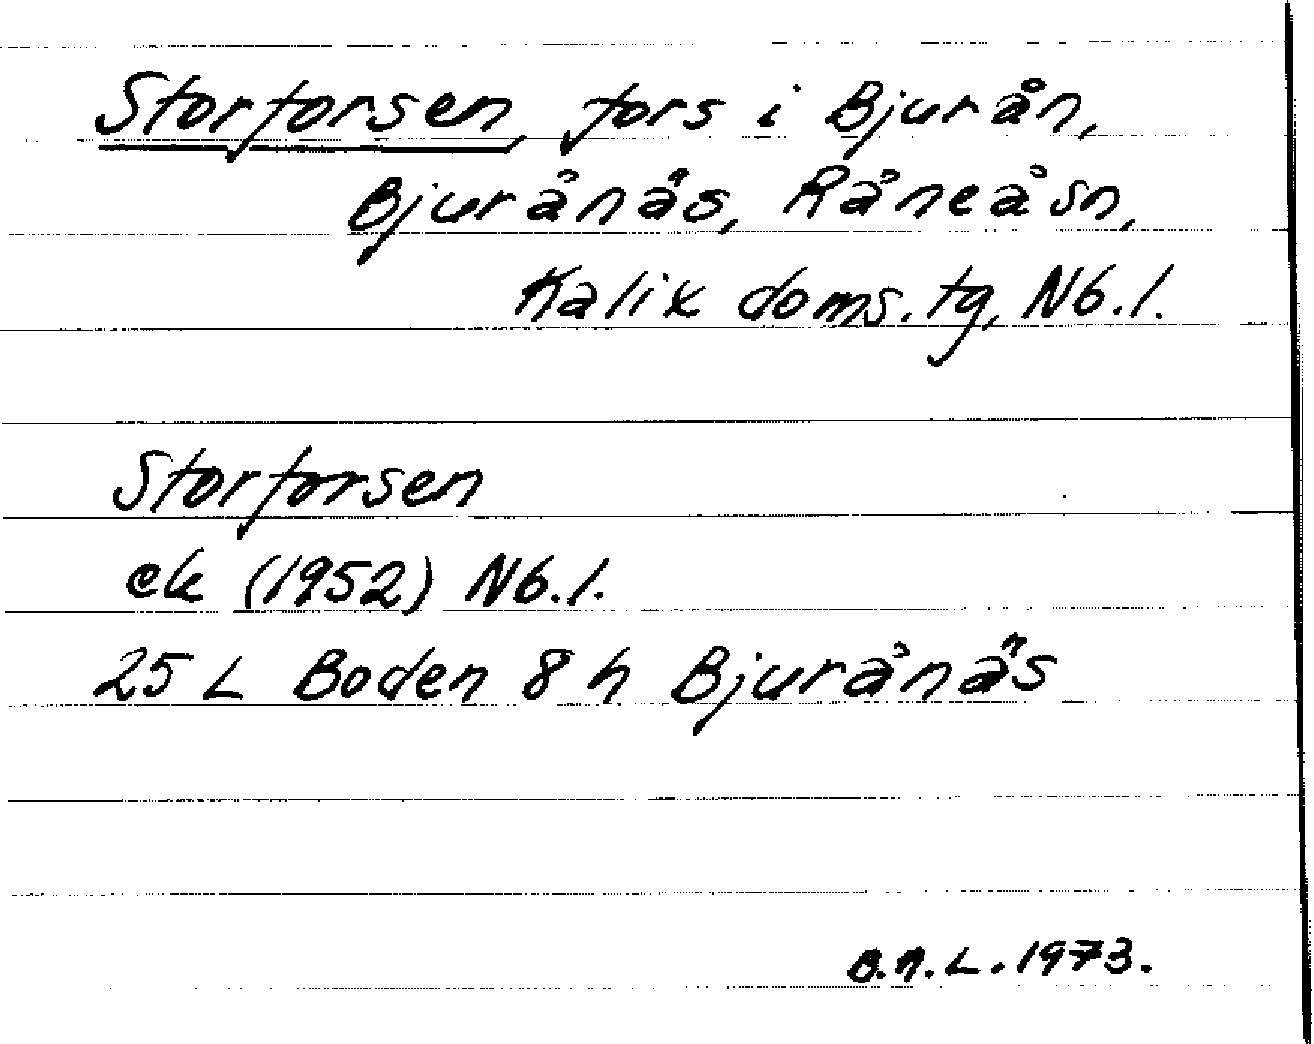 Storforsen, fors i Bjurån,
Bjurånäs, Råneå sn,
Kalix doms. tg, Nb. l.
Storforsen
ek (1952) Nb. l.
25 L Boden 8 h Bjurånäs
B.A.L. 1973.